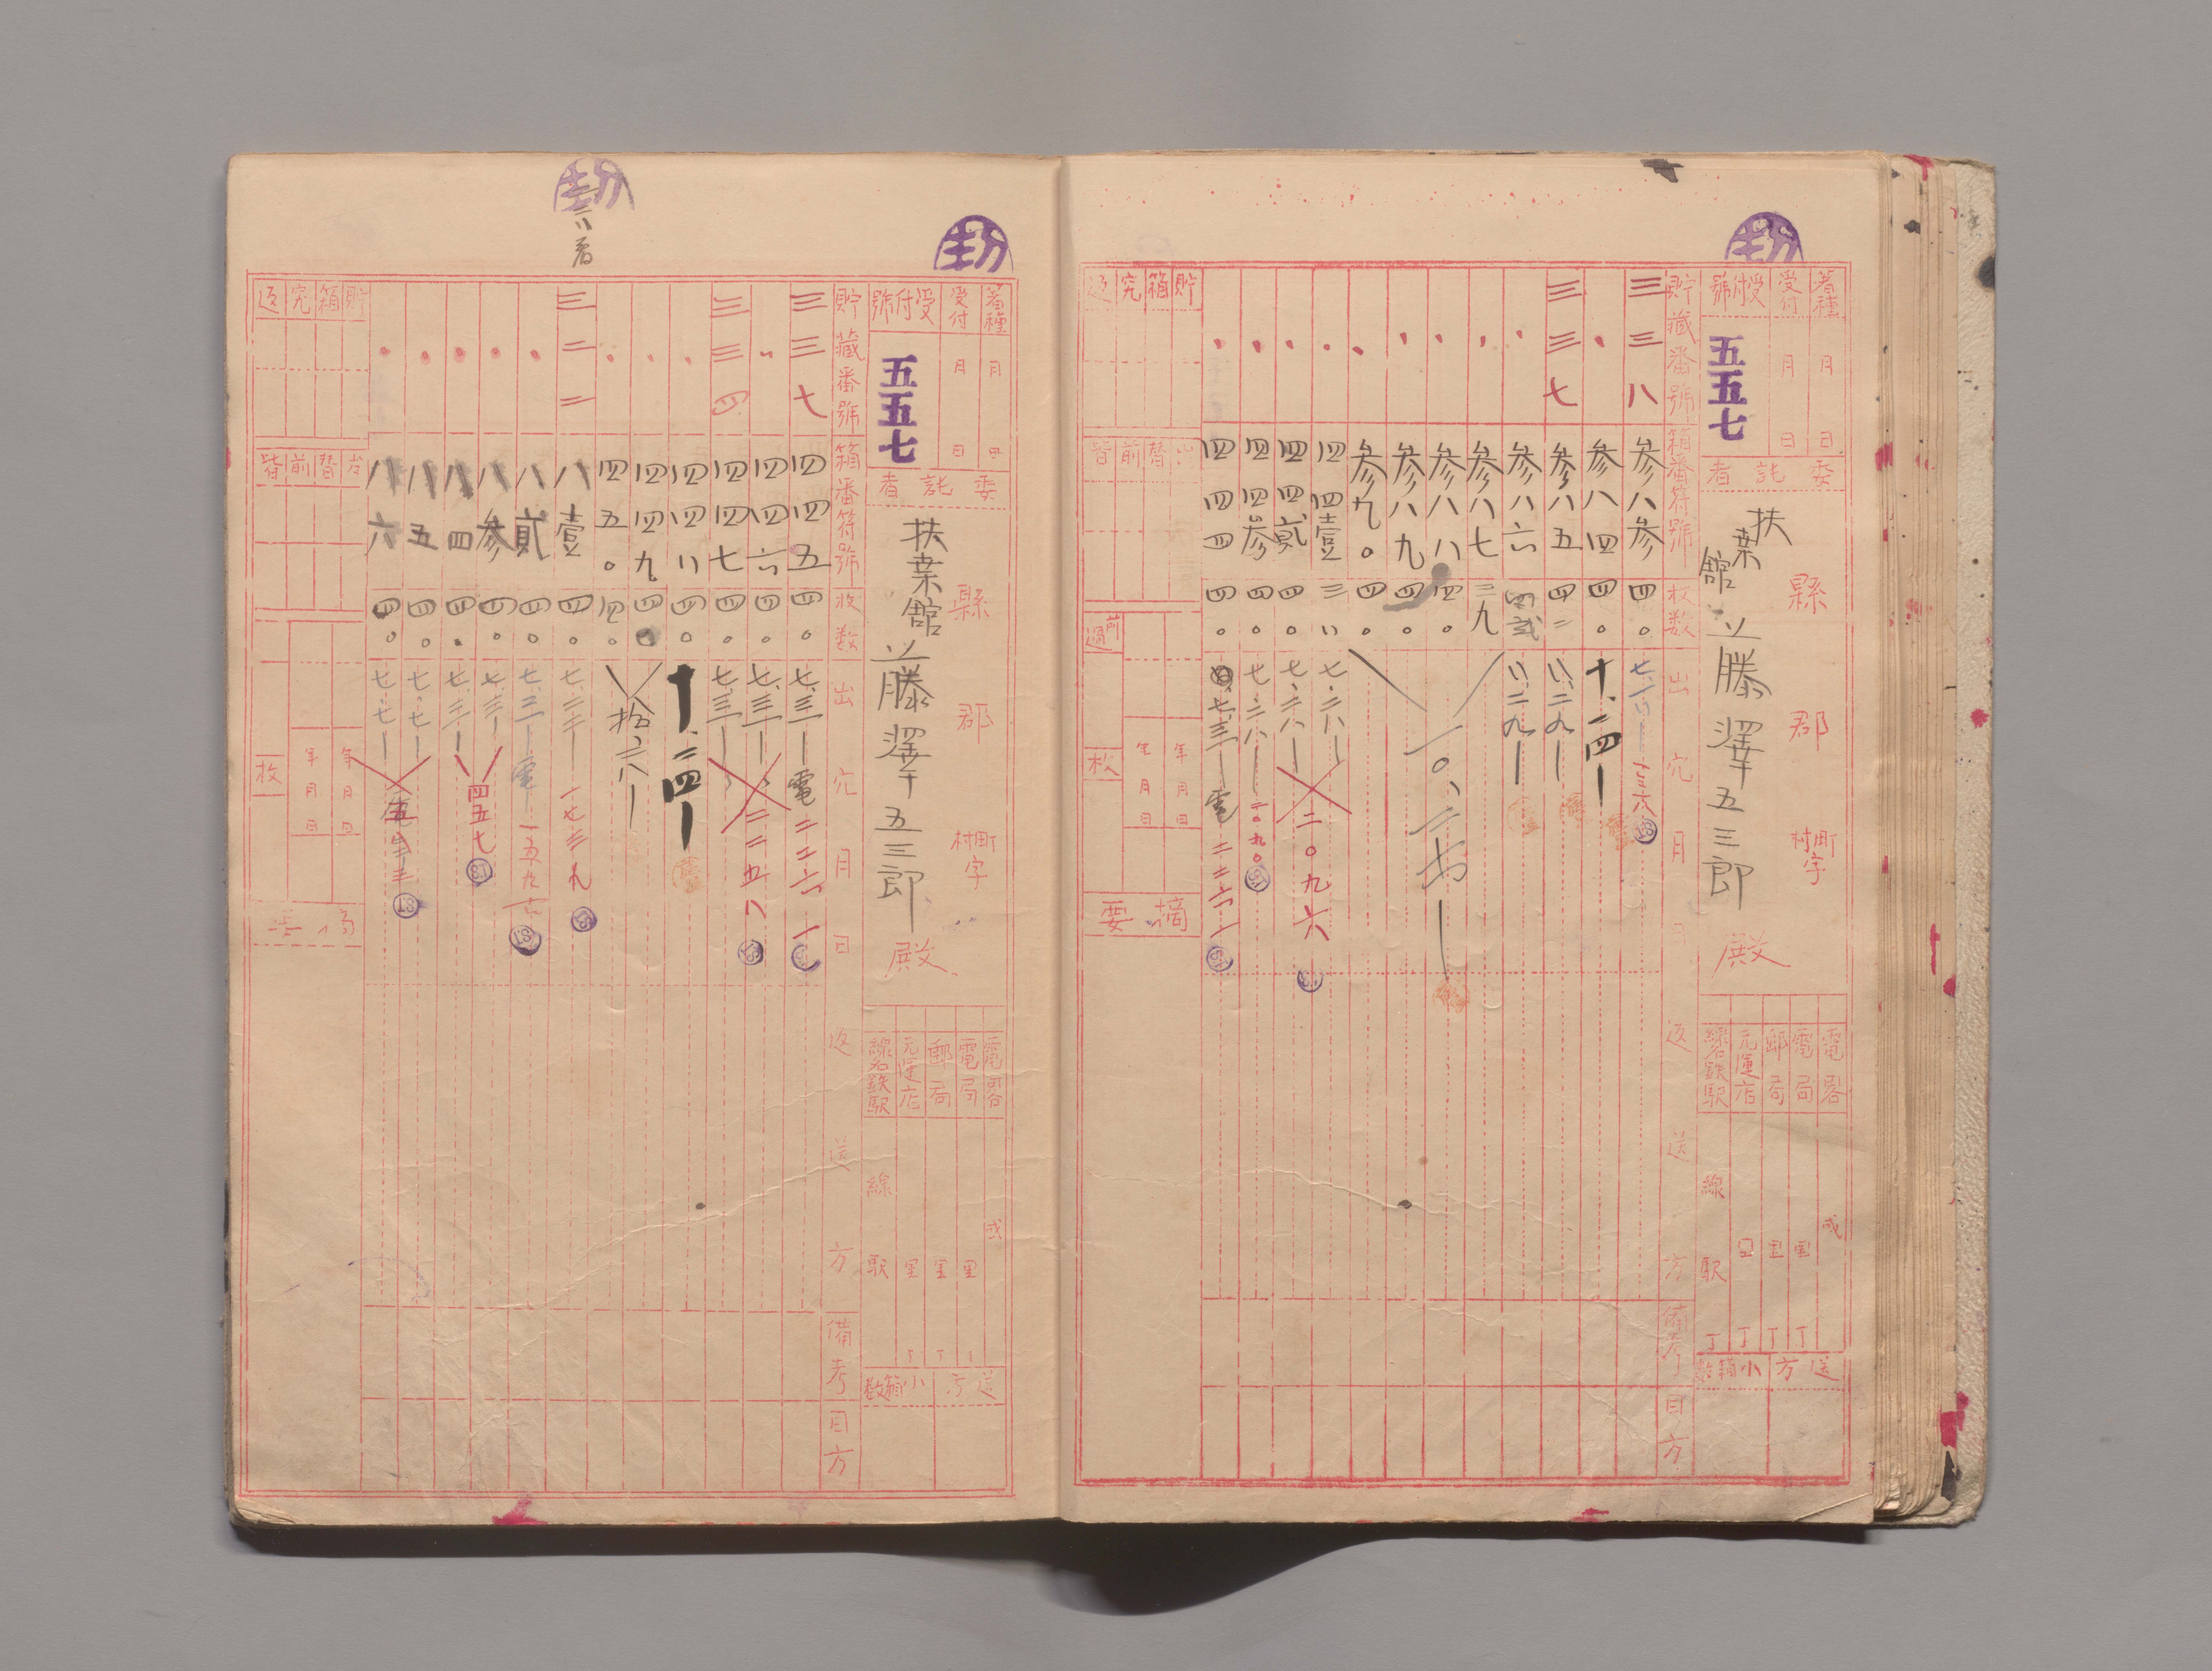 着種
受付
受付號
月
日
月
日
五五七
委託者
縣
郡
町村字
扶桒館
藤澤五三郎
殿
電畧
電局
郵局
元運店
線名鉄駅
線
駅
里
里
里
丁
丁
丁
丁
送方
小箱数
貯藏番號
箱番符號
枚数
出穴月日
返送方
備考
目方
三三八
参八参
四〇
一三六八
参八四
四〇
十、二四
三三七
参八五
四二
八、二九
参八六
四弐
八、二九
参八七
三九
参八八
四〇
一〇、二七
参八九
四〇
参九〇
四〇
四四壹
三八
七、二八
四四貳
四〇
七、二八
二〇九六
四四参
四〇
七、二八
二〇九〇
四四四
四〇
七、三一
電
二二六一
貯箱穴返
前
枚
年月日
年月日
摘要
着種
受付
受付號
月
日
月
日
五五七
委託者
縣
郡
町村字
扶桒館
藤澤五三郎
殿
電畧
電局
郵局
元運店
線名鉄駅
線
駅
里
里
里
送方
小箱数
貯藏番號
箱番符號
枚数
出穴月日
返送方
備考
目方
三三七
四四五
四〇
七、三一
電
二二六一
四四六
四〇
七、三一
二二五八
三三四
四四七
四〇
七、三一
四四八
四〇
十、二四
四四九
四〇
拾、二八
四五〇
四〇
三二二
八壹
四〇
一七三九
八貳
四〇
七、三一
電
八参
四〇
七、三一
四五七
八四
四〇
七、三一
八五
四〇
七、七
八六
四〇
七、七
貯箱穴返
枚
年月日
年月日